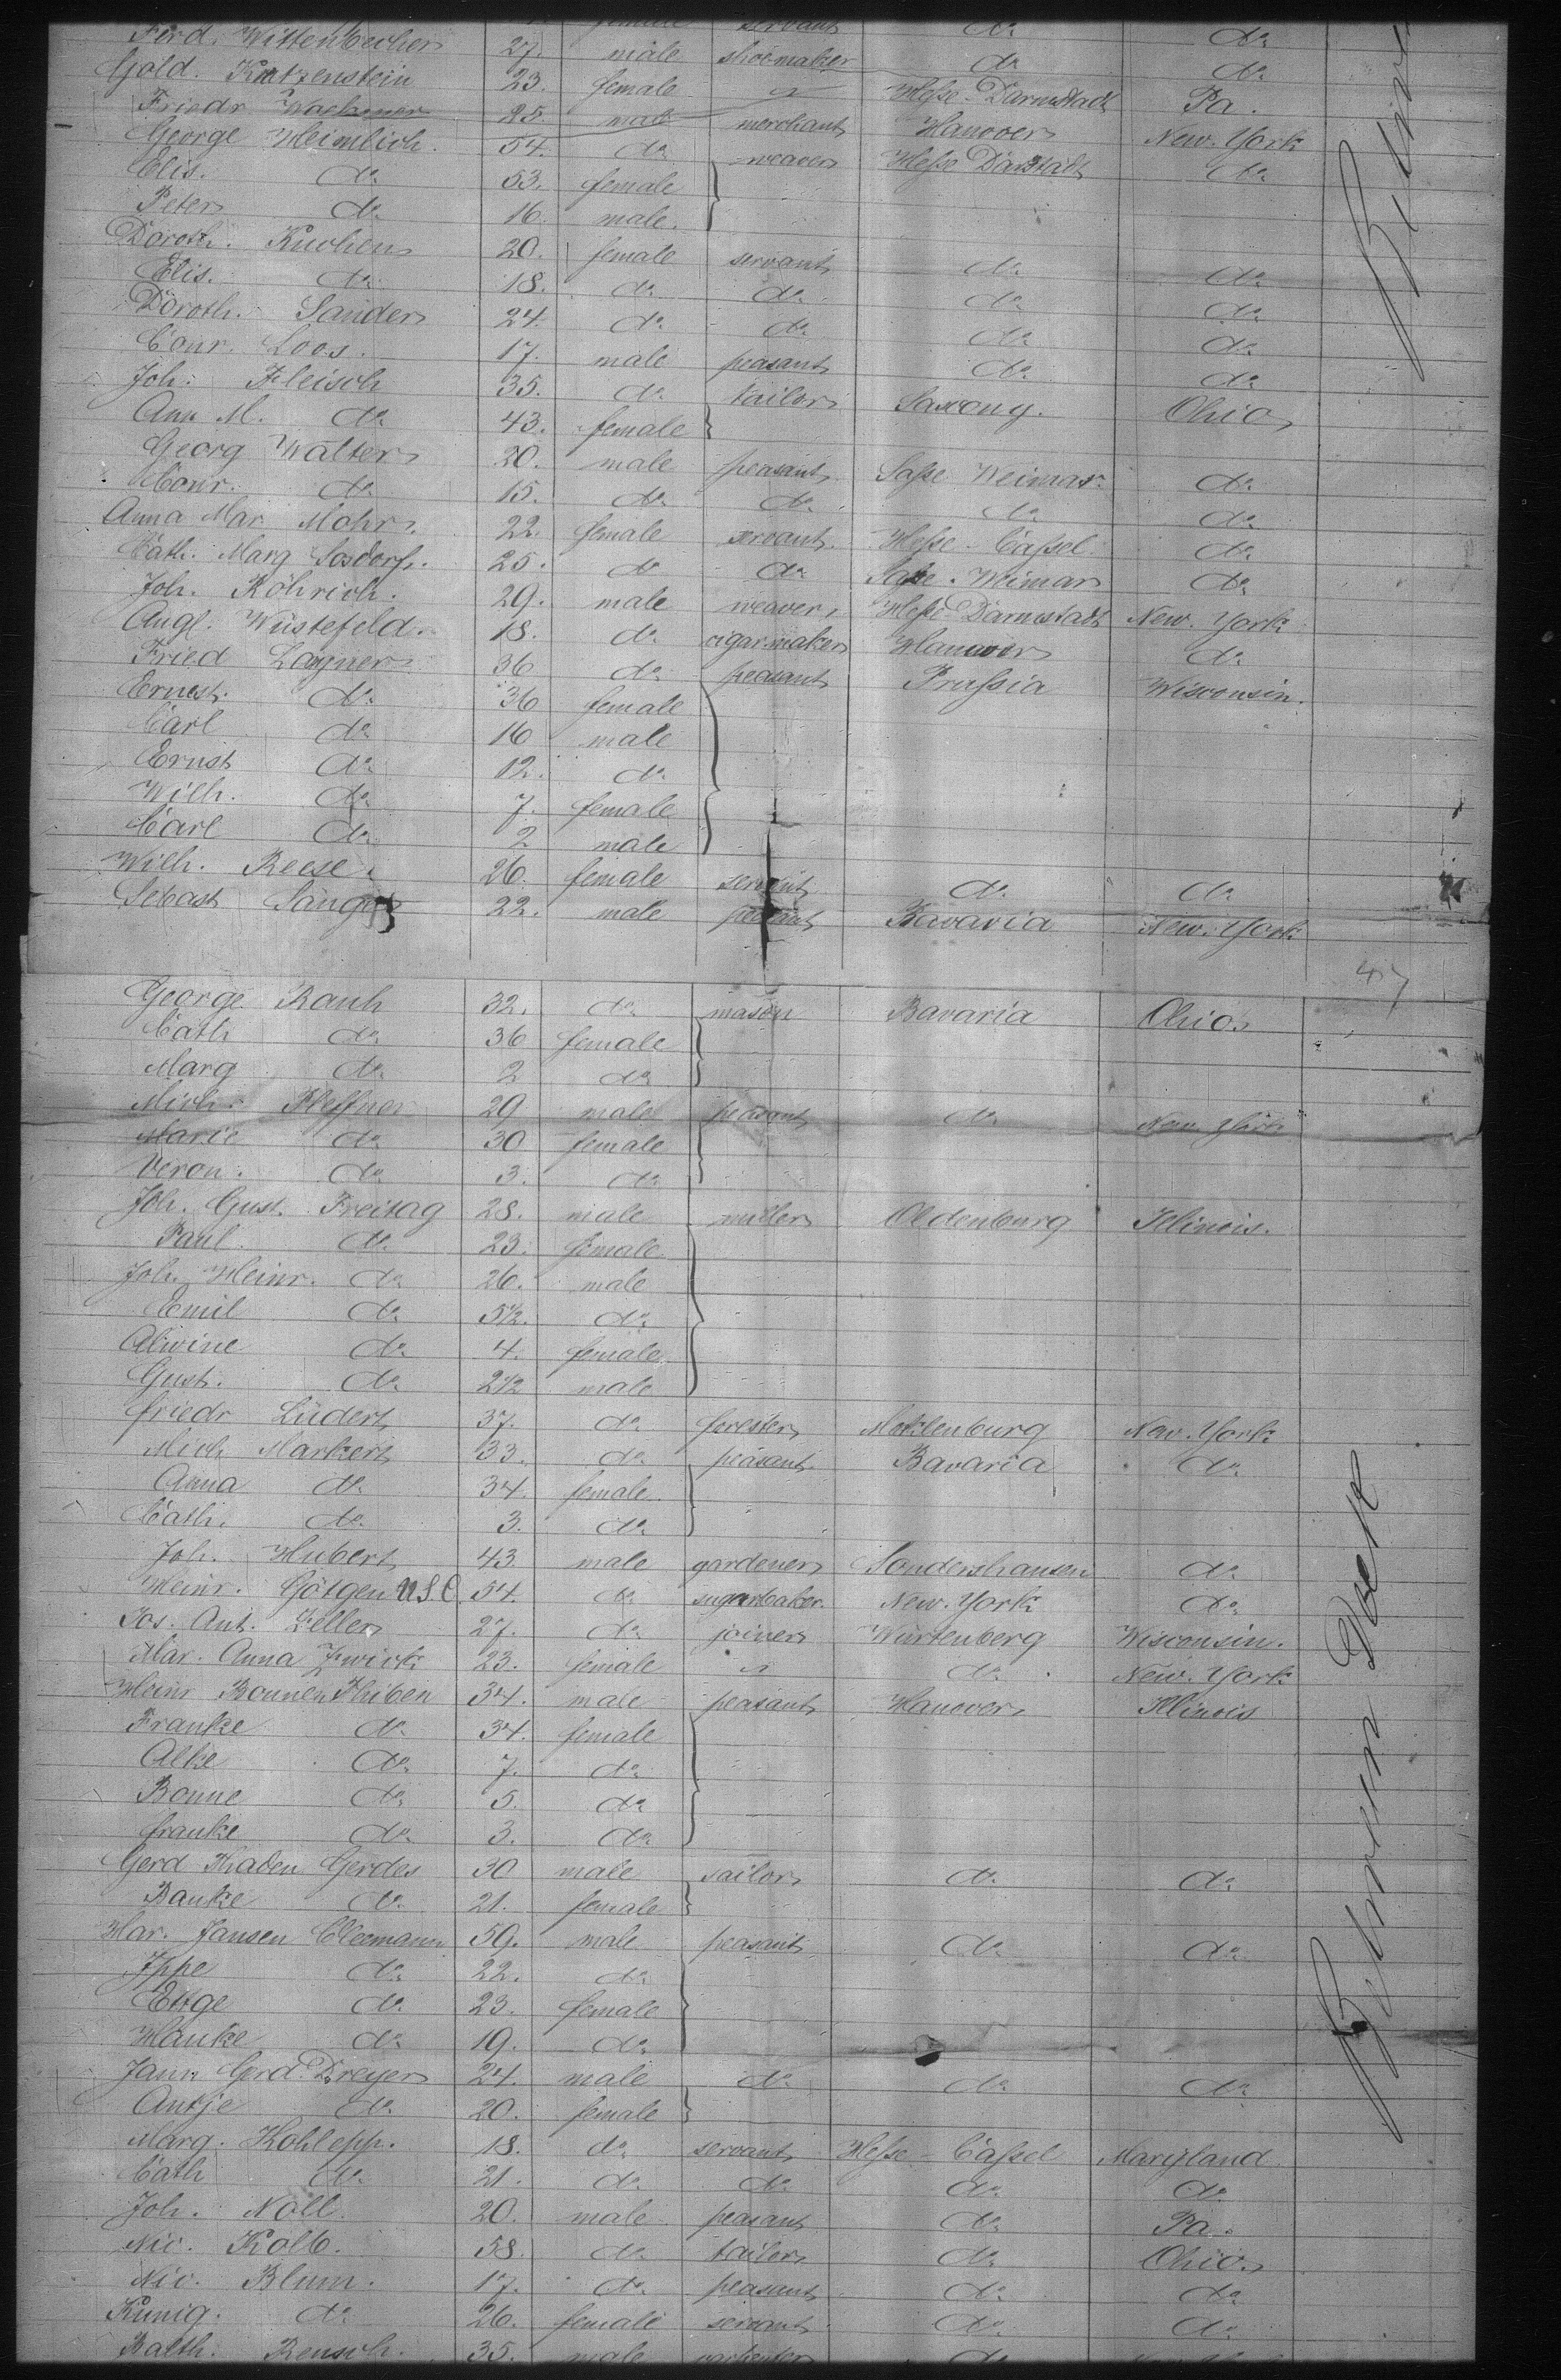 female servant do do
Ferd. Wittenbecher 27. male shoemaker do do
Gold. Katzenstein 23. female Heße-Darmstadt Pa.
Friedr 25. male merchant Hanover New-York
George Heimlich. 54. do weaver Heße Darstadt do
Elis. do 53. female
Peter do 16. male.
Doroth. Kuchen 20. female servant do do
Elis. do 18. do do do do
Doroth. Sander 24. do do do do
Conr. Loos. 17. male peasant do do
Joh. Fleisch 35. do tailor Saxony. Ohio
Ann M. do 43. female
Georg Walter 20. male peasant Saße Weimar. do
Conr. do 15. do do do do
Anna Mar. Mohr. 22. female servant. Heße-Caßel. do
Cath. Marg Sosdorf. 25. do do Saße-Weimar do
Joh. Röhrich. 29. male weaver Heße-Darmstadt New-York
Augl. Wüstefeld. 18. do cigarmaker Hanover do
Fried Lagner 36 do peasant Prußia Wisconsin.
Ernest. do 36 female
Carl do 16 male
Ernst do 12. do
Wilh. do 7. female
Carl do 2 male
Wilh. Reese. 26. female servant do do
Sebast Sänger 22. male peasant Bavaria New-York
47
George Rauh 32. do mason Bavaria Ohio
Cath do 36 female
Marg do 2 do
Mich. Pfeffner 29 male peasant do New York
Marie do 30 female
Veron. do 3. do
Joh. Gust. Freitag 28. male miller Oldenburg Illinois.
Paul. do 23. female
Joh. Heinr. do 26. male
Emil do 5½. do
Alwine do 4. female
Gust. do 2½ male
friedr Lüdert 37. do forester Meklenburg New-York
Mich Markert 33. do peasant Bavaria do
Anna do 34. female
Cath. do 3. do
Joh. Hubert 43 male gardener Sondershausen do
Heinr. Götgen U.S.C. 54. do sugarbaker New-York do
Jos. Ant. Zeller 27. do joiner Würtenberg Wisconsin.
Mar. Anna Zwick 23. female do New-York
Heinr Bonnen Thiben 34. male peasant Hanover Illinois
Franke do 34. female
Alke do 7. do
Bonne do 5. do
franke do 3. do
Gerd Kaden Gerdes 30 male sailor do do
Bauke do 21. female
Har. Jansen Cleemann 59. male peasant do do
Ippe do 22. do
do 23. female
Hauke do 19. do
Jann Gerd. Dreyer 24. male do do do
Antje do 20. female
Marg. Kohlepp. 18. do servant Heße-Caßel Maryland
Cath do 21. do do do do
Joh. Noll 20. male peasant do Pa.
Nic. Kolb. 58. do tailor do Ohio
Nic. Blum. 17. do peasant do do
Kunig. do 26. female servant do do
Balth. Rensch. 35. male carpenter do